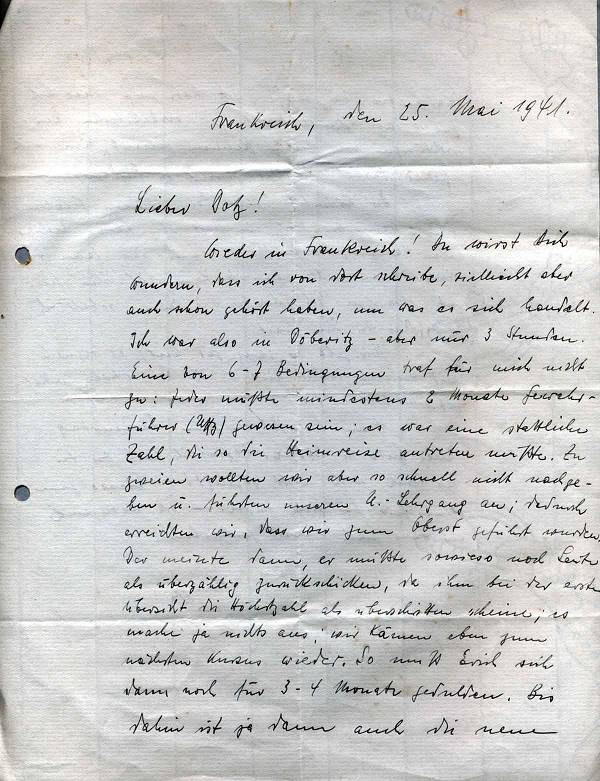 Frankreich, den 25. Mai 1941.
Lieber Dotz!
Wieder in Frankreich! Du wirst Dich
wundern, dass ich von dort schreibe, vielleicht aber
auch schon gehört haben, um was es sich handelt.
Ich war also in Döberitz – aber nur 3 Stunden.
Eine von 6-7 Bedingungen traf für mich nicht
zu: Jeder müßte mindestens 2 Monate Gewehr-
führer (Uffz) gewesen sein; es war eine stattliche
Zahl, die so die Heimreise antreten mußte. Zu
zweien wollten wir aber so schnell nicht nachge-
ben u. führten unseren U.-Lehrgang an; dadurch
erreichten wir, dass wir zum Oberst geführt wurden.
Der meinte dann, er müßte sowieso noch Leute
als überzählig zurückschicken, da ihm bei der ersten
Übersicht die Höchstzahl als überschritten scheine; es
mache ja nichts aus, wir kämen eben zum
nächsten Kursus wieder. So muß Erich sich
dann noch für 3-4 Monate gedulden. Bis
dahin ist ja dann auch die neue